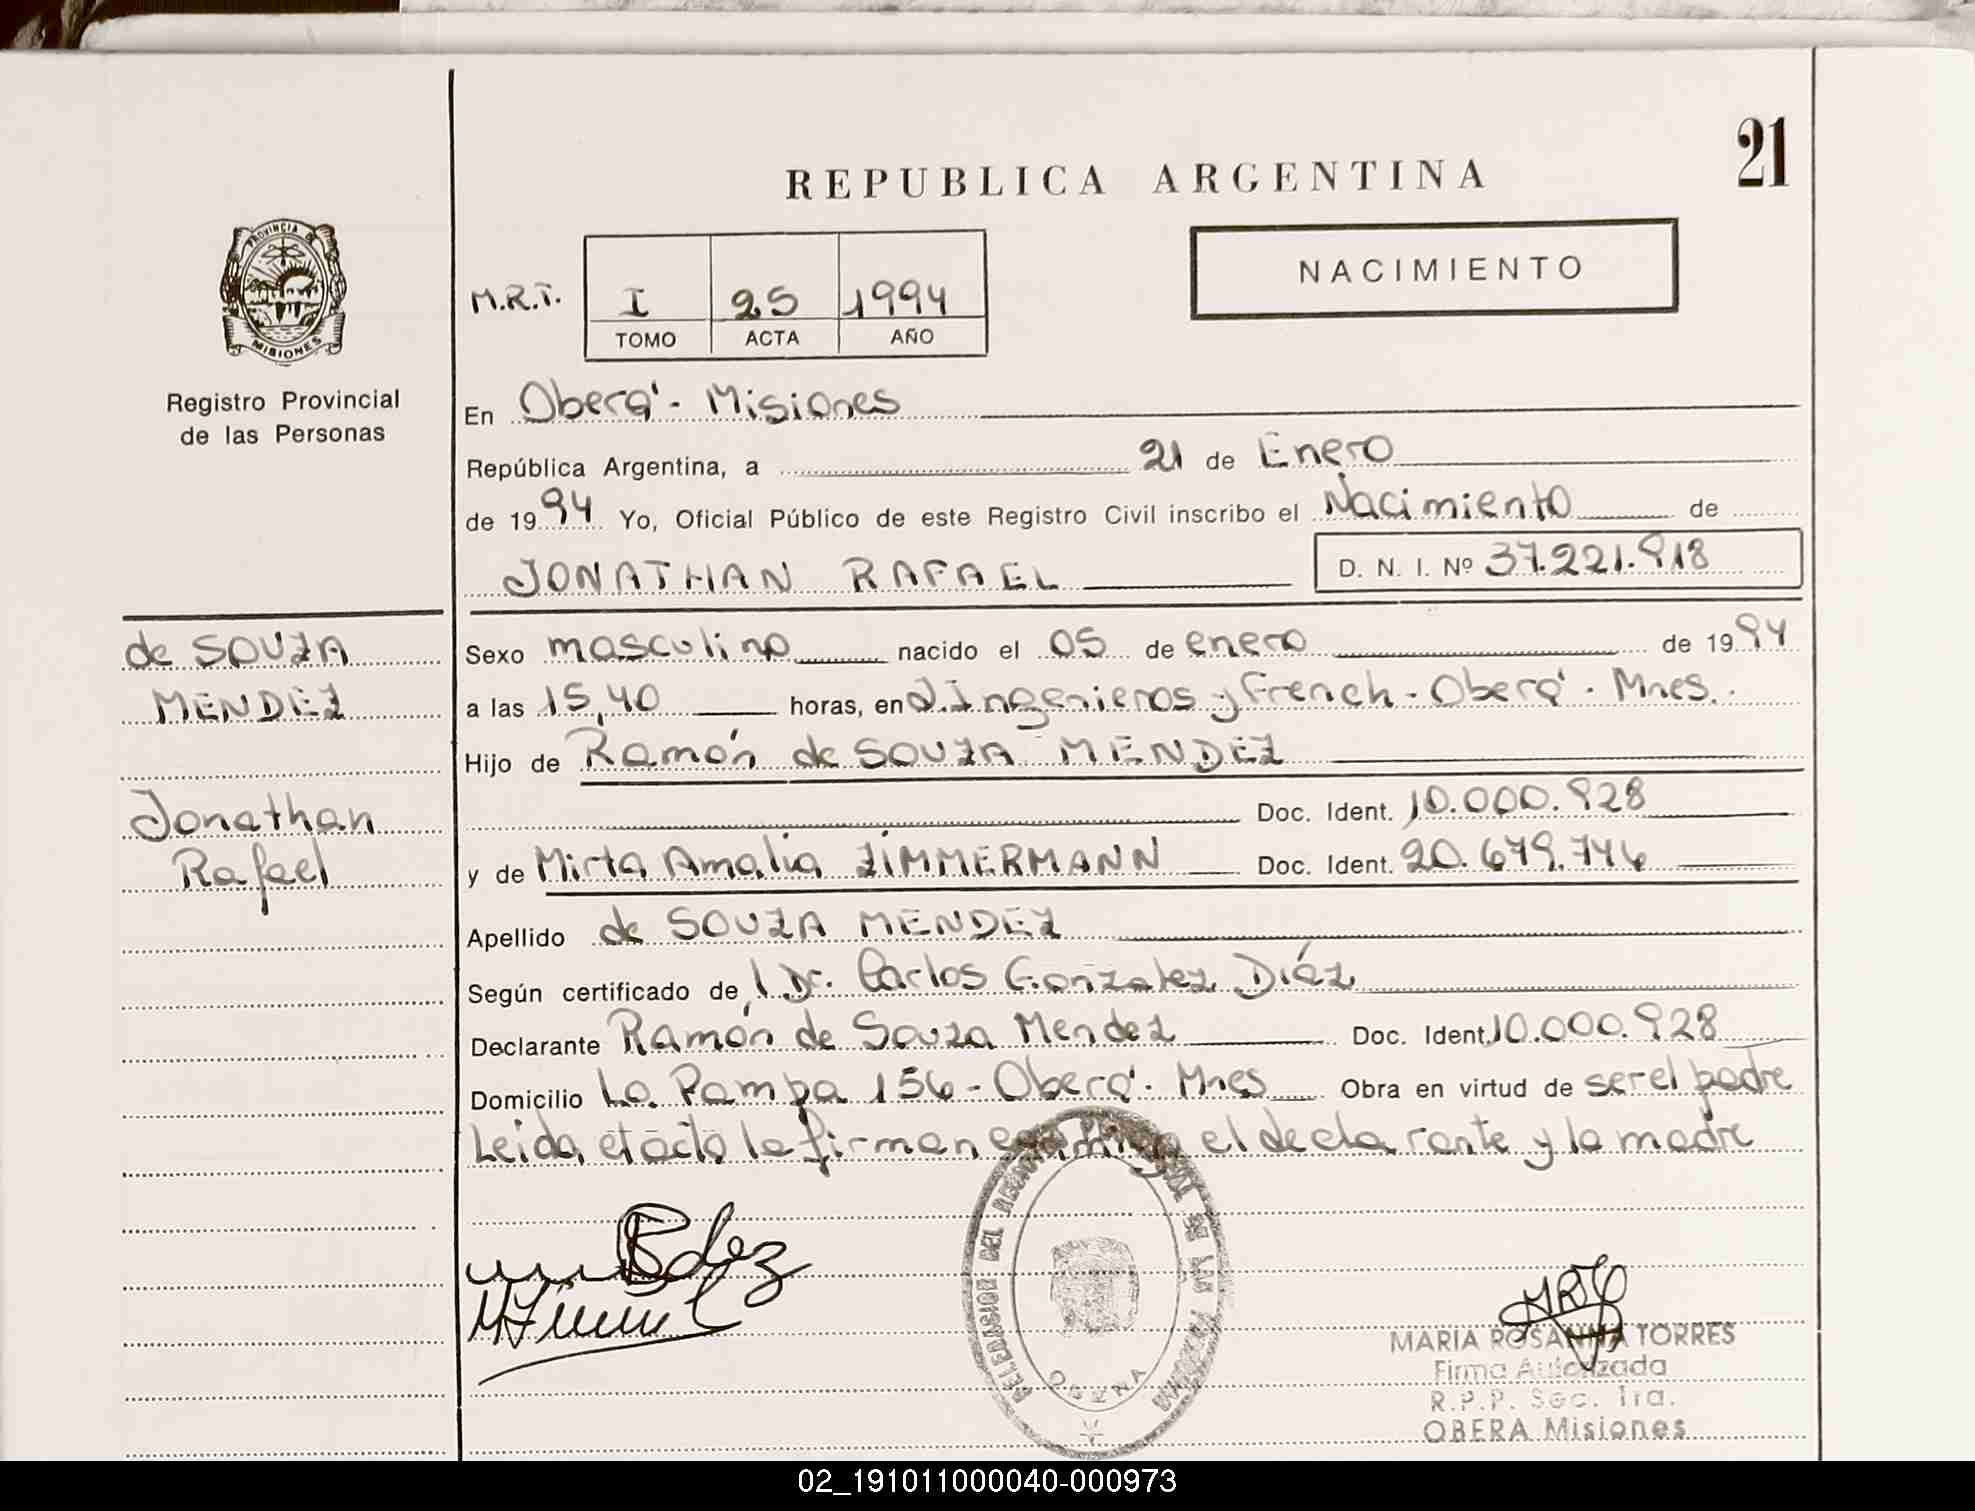 21
REPUBLICA ARGENTINA
PROVINCIA DE
MISIONES
NACIMIENTO
M.R.T. I 25 1994
TOMO ACTA AÑO
Registro Provincial
de las Personas
En Oberá - Misiones
República Argentina, a 21 de Enero
de 1994 Yo, Oficial Público de este Registro Civil inscribo el Nacimiento de
JONATHAN RAFAEL D. N. I. Nº 37.221.918
de SOUZA
MENDEZ
Jonathan
Rafael
Sexo masculino nacido el 05 de enero de 1994
a las 15,40 horas, en J.Ingenieros y French - Oberá - Mnes.
Hijo de Ramón de SOUZA MENDEZ
Doc. Ident. 10.000.928
y de Mirta Amalia ZIMMERMANN Doc. Ident. 20.679.746
Apellido de SOUZA MENDEZ
Según certificado de l Dr. Carlos Gonzalez Díez
Declarante Ramón de Souza Mendez Doc. Ident. 10.000.928
Domicilio La Pampa 156 - Oberá - Mnes Obra en virtud de ser el padre
Leida el acta la firman conmigo el declarante y la madre
DELEGACION DEL REGISTRO PROVINCIAL DE LAS PERSONAS
OBERA
MARIA ROSANNA TORRES
Firma Autorizada
R.P.P. Sec. 1ra.
OBERA Misiones
02_191011000040-000973